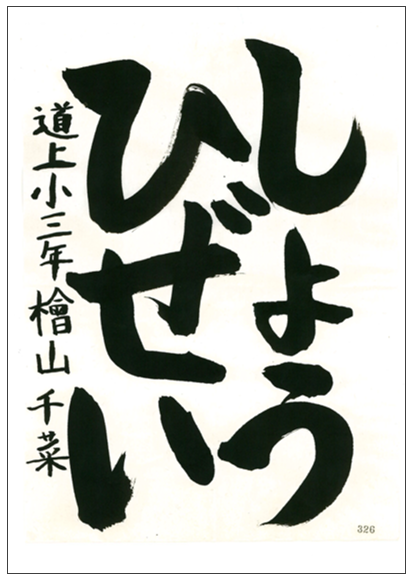 しょう
ひぜい
道上小三年檜山千菜
326